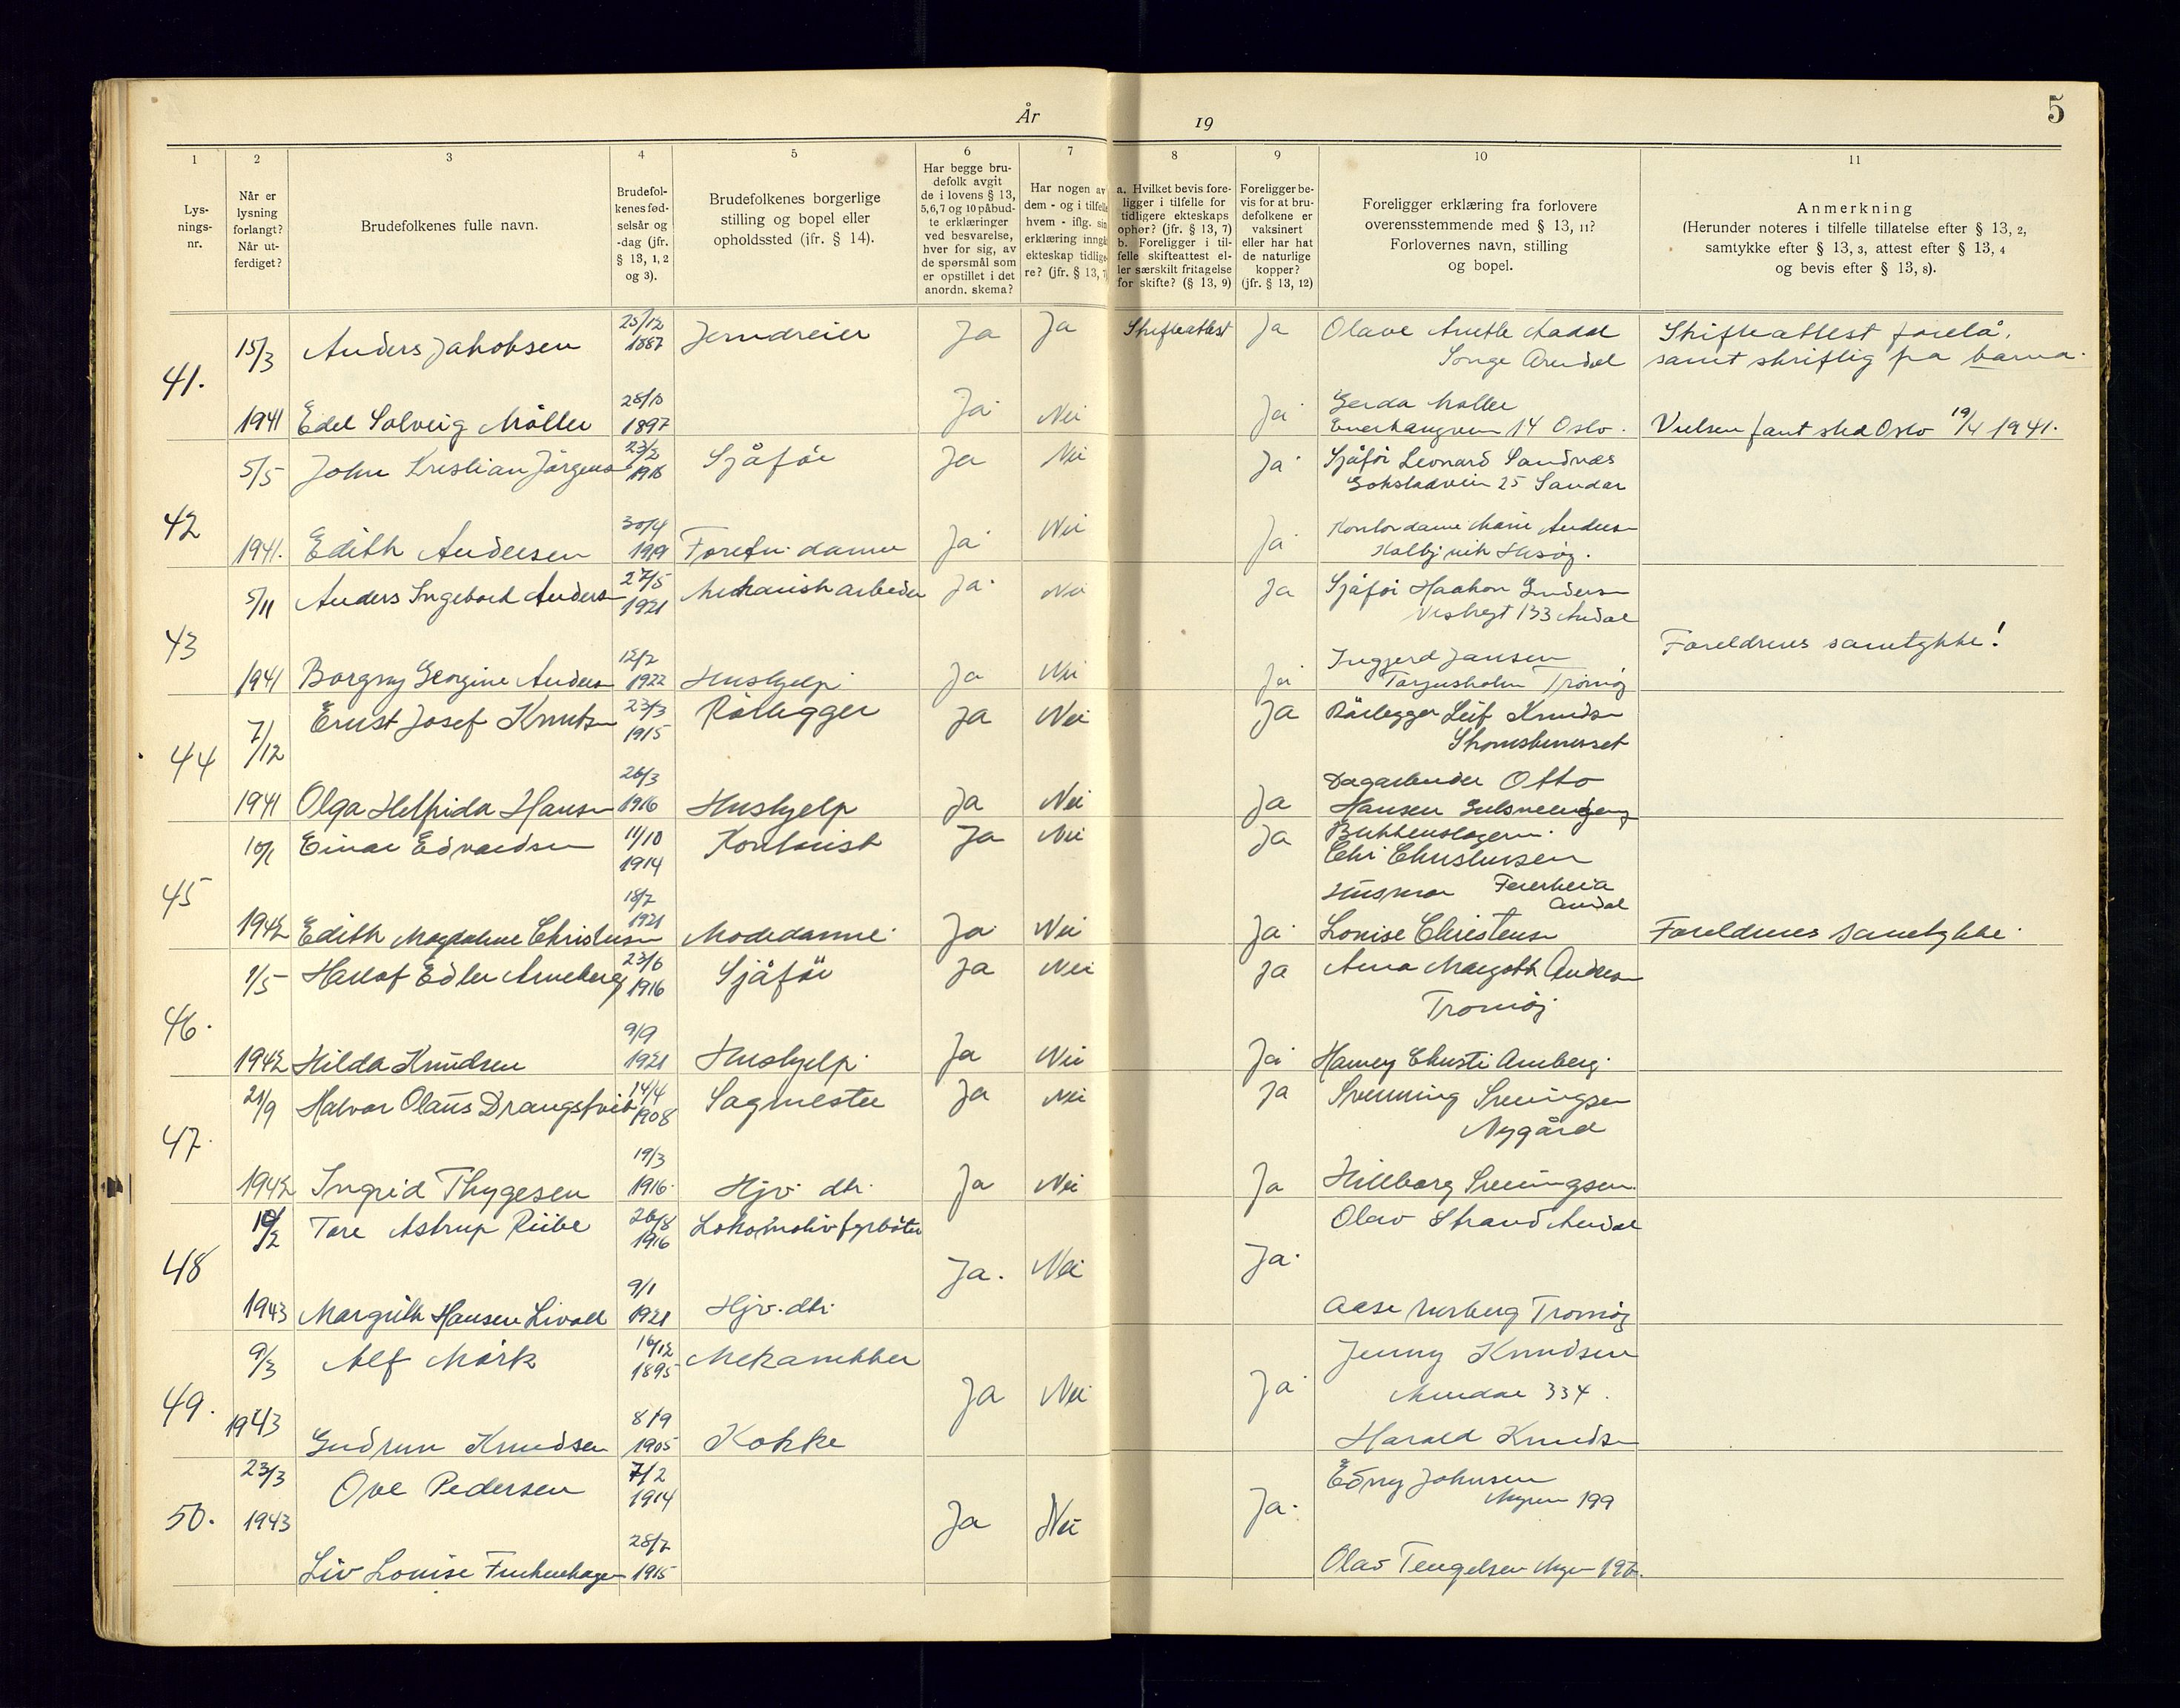 År 19 5
1
Lys-
nings-
nr.
2
Når er
lysning
forlangt?
Når ut-
ferdiget?
3
Brudefolkenes fulle navn.
4
Brudefol-
kenes fød-
selsår og
-dag (jfr.
§ 13, 1, 2
og 3).
5
Brudefolkenes borgerlige
stilling og bopel eller
opholdssted (jfr. § 14).
6
Har begge bru-
defolk avgit
de i lovens § 13,
5,6,7 og 10 påbud-
te erklæringer
ved besvarelse,
hver for sig, av
de spørsmål som
er opstillet i det
anordn. skema?
7
Har nogen av
dem - og i tilfelle
hvem - iflg. sin
erklæring inngå
ekteskap tidlige-
re? (jfr. § 13, 7
8
a. Hvilket bevis fore-
ligger i tilfelle for
tidligere ekteskaps
ophør? (jfr. § 13, 7)
b. Foreligger i til-
felle skifteattest el-
ler særskilt fritagelse
for skifte? (§ 13, 9)
9
Foreligger be-
vis for at bru-
defolkene er
vaksinert
eller har hat
de naturlige
kopper?
(jfr. § 13, 12)
10
Foreligger erklæring fra forlovere
overensstemmende med § 13, 11?
Forlovernes navn, stilling
og bopel.
11
Anmerkning
(Herunder noteres i tilfelle tillatelse efter § 13, 2,
samtykke efter § 13, 3, attest efter § 13, 4
og bevis efter § 13, 8).
41. 15/3 Anders Jakobsen 25/12 1887 Jerndreier Ja Ja Skifteattest Ja Olave Anette Aadal
Songe Arendal
Skifteattest forelå,
samt skriftlig fra barna.
1941 Edel Solveig Möller 1897 Ja Nei Ja Gerda Möller
14 Oslo. Vielsen fant sted Oslo 19/4 1941.
42 5/5 John Kristian Jörgens 23/2 1916 Sjåför Ja Nei Ja Sjåför Leonard Sandnæs
Gokstadvein 25 Sandar
1941. Edith Andersen 30/4 1919 Foretn. dame Ja Nei Ja Kontordame Marie Anders
Kolbj.vik Hisöy.
43 5/11 Anders Ingebert Anders 27/5 1921 Mekanisk arbeider Ja Nei Ja Sjåför Haakon Gunders
Vestregt 133 Arndal
Foreldrenes samtykke!
1941 Borgny Georgine Anders 12/2 1922 Hushjelp Ja Nei Ja Ingjerd Jansen
Torjusholm Tromöy
44 7/12 Ernst Josef Knuts 23/3 1915 Rörlegger Ja Nei Ja Rörlegger Leif Knuds
1941 Olga Helfrida Hans 26/3 1916 Hushjelp Ja Nei Ja Dagarbeider Otto
Hansen
45 10/1 Einar Edvardsen 11/10 1914 Kontorist Ja Nei Ja
Chr Christensen
Husmor
Arndal
1942 Edith Magdalene Christensen 18/7 1921 Modedame Ja Nei Ja Louise Christens Foreldrenes samtykke.
46. 1/5 Herlof Edler Arneberg 23/6 1916 Sjåför Ja Nei Ja Anna Margoth Anders
Tromöy
1942 Hilda Knudsen 9/9 1921 Hushjelp Ja Nei Ja
47. 21/9 Halvor Olaus Drangsfeit 14/4 1908 Sagmester Ja Nei Ja Svenning Sveningsen
Nygård
1942 Ingrid Thygesen 19/3 1916. Hjv. dtr. Ja Nei Ja Hillborg Sveningsen
48 Tore Astrup Riibe 26/8 1916 Lokomotivfyrböter Ja. Nei Ja. Olav Strand Arndal
1943 Margith Hansen Livoll 9/1 1921 Hjv. dtr. Aase Tromöy
49. 9/3 Alf Mörk 16/12 1895 Mekanikker Ja Nei Ja Jenny Knudsen
334.
1943 Gudrun Knudsen 8/9 1905 Kokke Harald Knuds
50. 23/3 Ove Pedersen 7/2 1914 Ja Nei Ja. Edny Johnsen
Myren 199
1943 Liv Louise Finkenhagen 1915 Olav Tengelsen